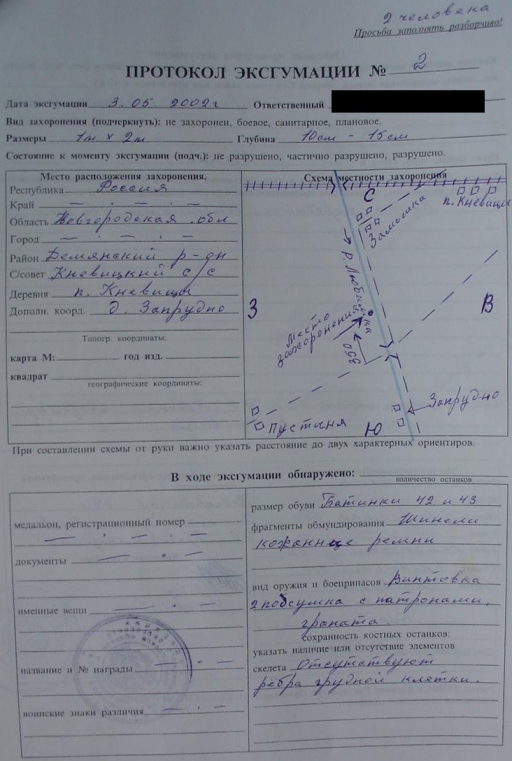 2 человека
Просьба заполнять разборчиво!
ПРОТОКОЛ ЭКСГУМАЦИИ № 2
Дата эксгумации 3.05.2002г Ответственный
Вид захоронения (подчеркнуть): не захоронен, боевое, санитарное, плановое.
Размеры 1м х 2м Глубина 10см - 15см
Состояние к моменту эксгумации (подч.): не разрушено, частично разрушено, разрушено.
Место расположения захоронения.
Республика Россия
Край — . — . —
Область Новгородская обл
Город — . — . —
Район Демянский р-он
С/совет Кневицкий с/с
Деревня п. Кневицы
Дополн. коорд. д. Запрудно
Топогр. координаты:
карта М: год изд.
квадрат
географические координаты:
Схема местности захоронения
С
п. Кневицы
Замошка
р. Любинка
З
В
Место захоронения
350
Запрудно
Пустыня
Ю
При составлении схемы от руки важно указать расстояние до двух характерных ориентиров.
В ходе эксгумации обнаружено:
количество останков
медальон, регистрационный номер
— . — . —
документы — . —
именные вещи — . —
название и № награды — . —
воинские знаки различия — . —
размер обуви Ботинки 42 и 43
фрагменты обмундирования Шинели
кожанные ремни
вид оружия и боеприпасов Винтовка
2 подсумка с патронами,
граната
сохранность костных останков:
указать наличие или отсутствие элементов
скелета Отсутствуют
рёбра грудной клетки.